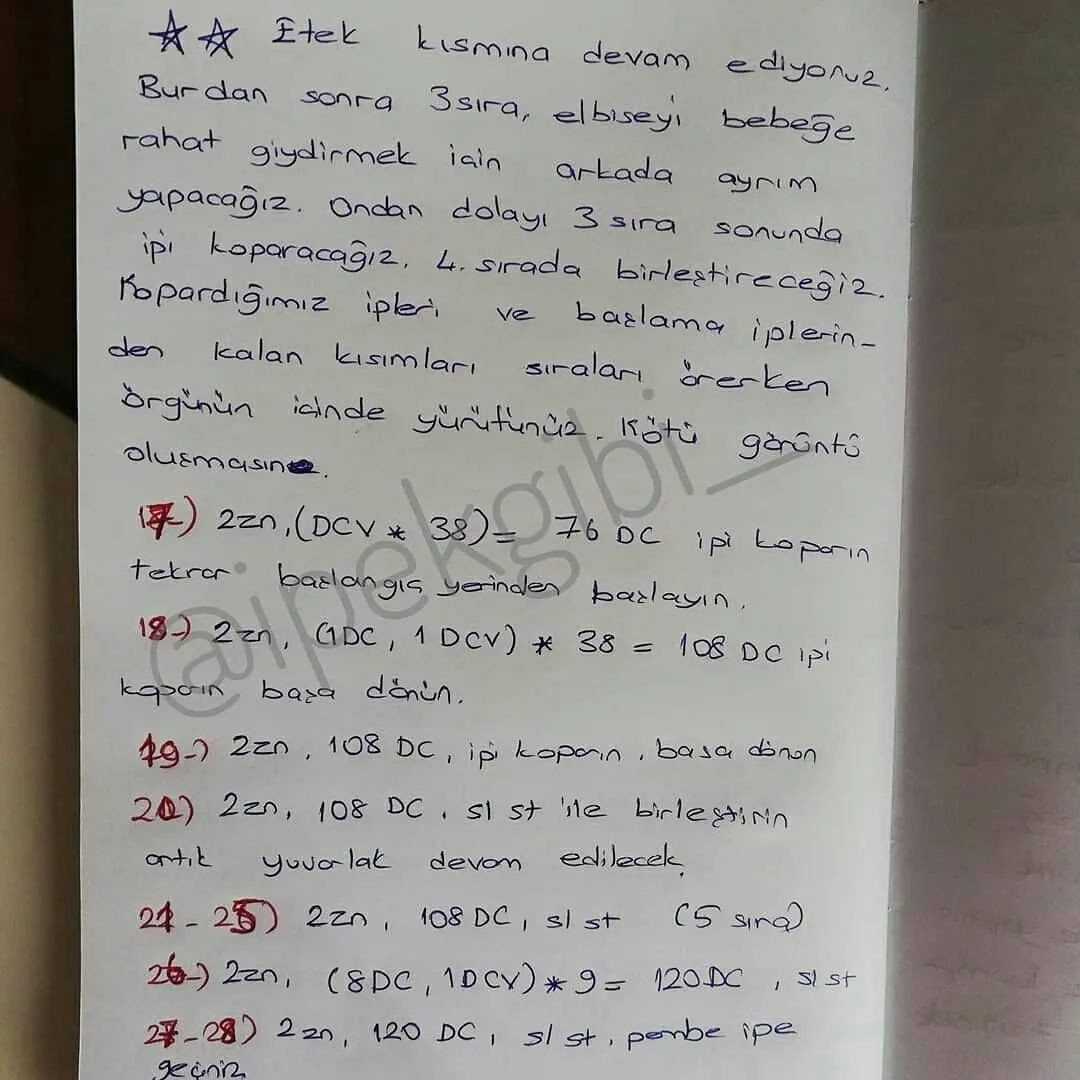 ☆☆ Etek kısmına devam ediyoruz.
Burdan sonra 3 sıra, elbiseyi bebeğe
rahat giydirmek için arkada ayrım
yapacağız. Ondan dolayı 3 sıra sonunda
ipi koparacağız. 4. sırada birleştireceğiz.
Kopardığımız ipleri ve başlama iplerin-
den kalan kısımları sıraları örerken
örgünün içinde yürütünüz. Kötü görüntü
oluşmasın.
17-) 2zn, (DCV * 38) = 76 DC ipi koparın
tekrar başlangıç yerinden başlayın.
18-) 2zn, (1DC, 1 DCV) * 38 = 108 DC ipi
koparın başa dönün.
19-) 2zn, 108 DC, ipi koparın, başa dönün
20) 2zn, 108 DC, sl st ile birleştirin
artık yuvarlak devam edilecek.
21 - 25) 2zn, 108 DC, sl st (5 sıra)
26-) 2zn, (8DC, 1DCV) * 9 = 120DC, sl st
27-28) 2zn, 120 DC, sl st, pembe ipe
geçiniz
@ipekgibi_